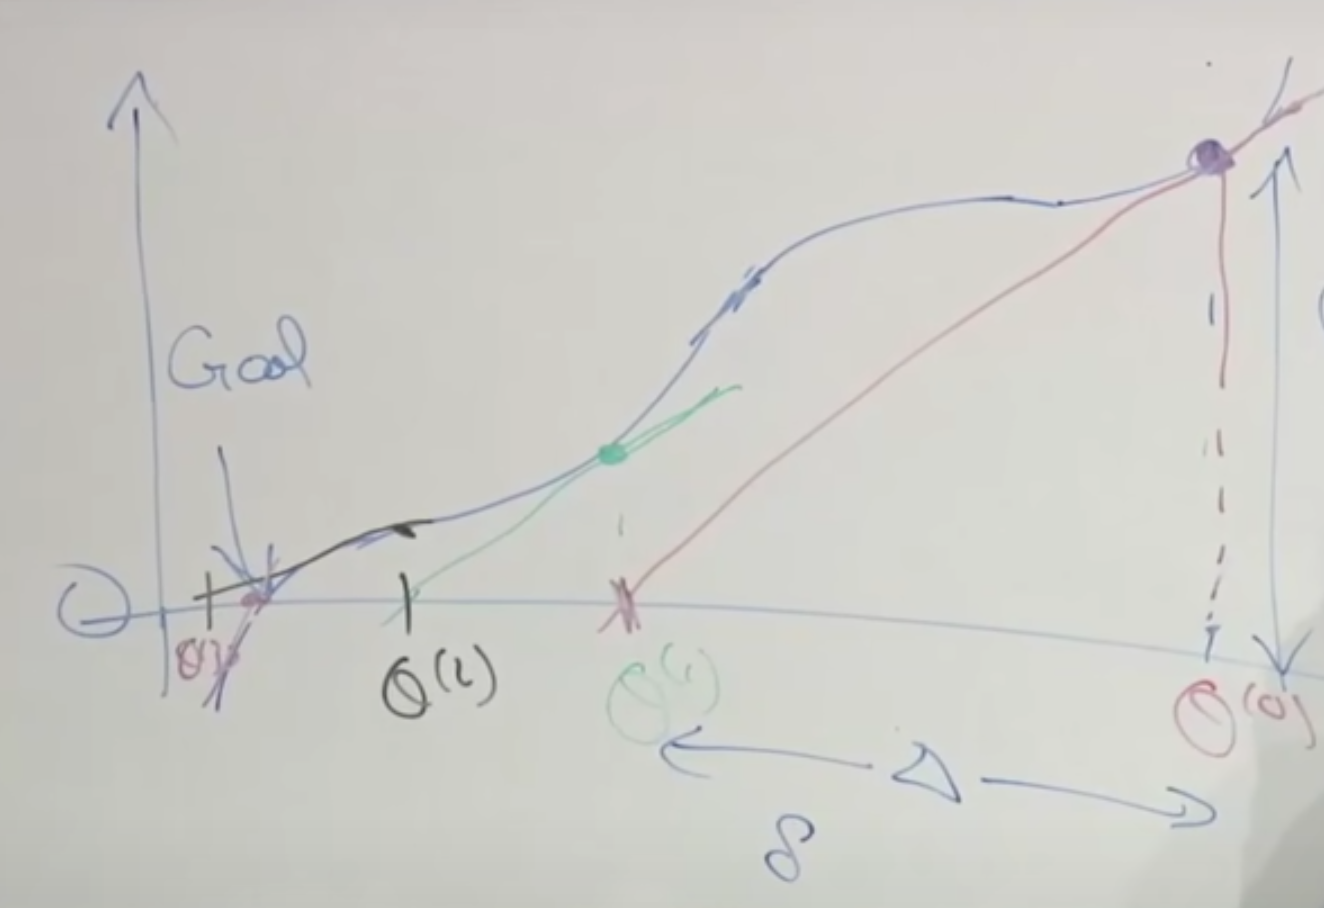 Goal
θ(2)
θ(1)
θ(0)
Δ
δ